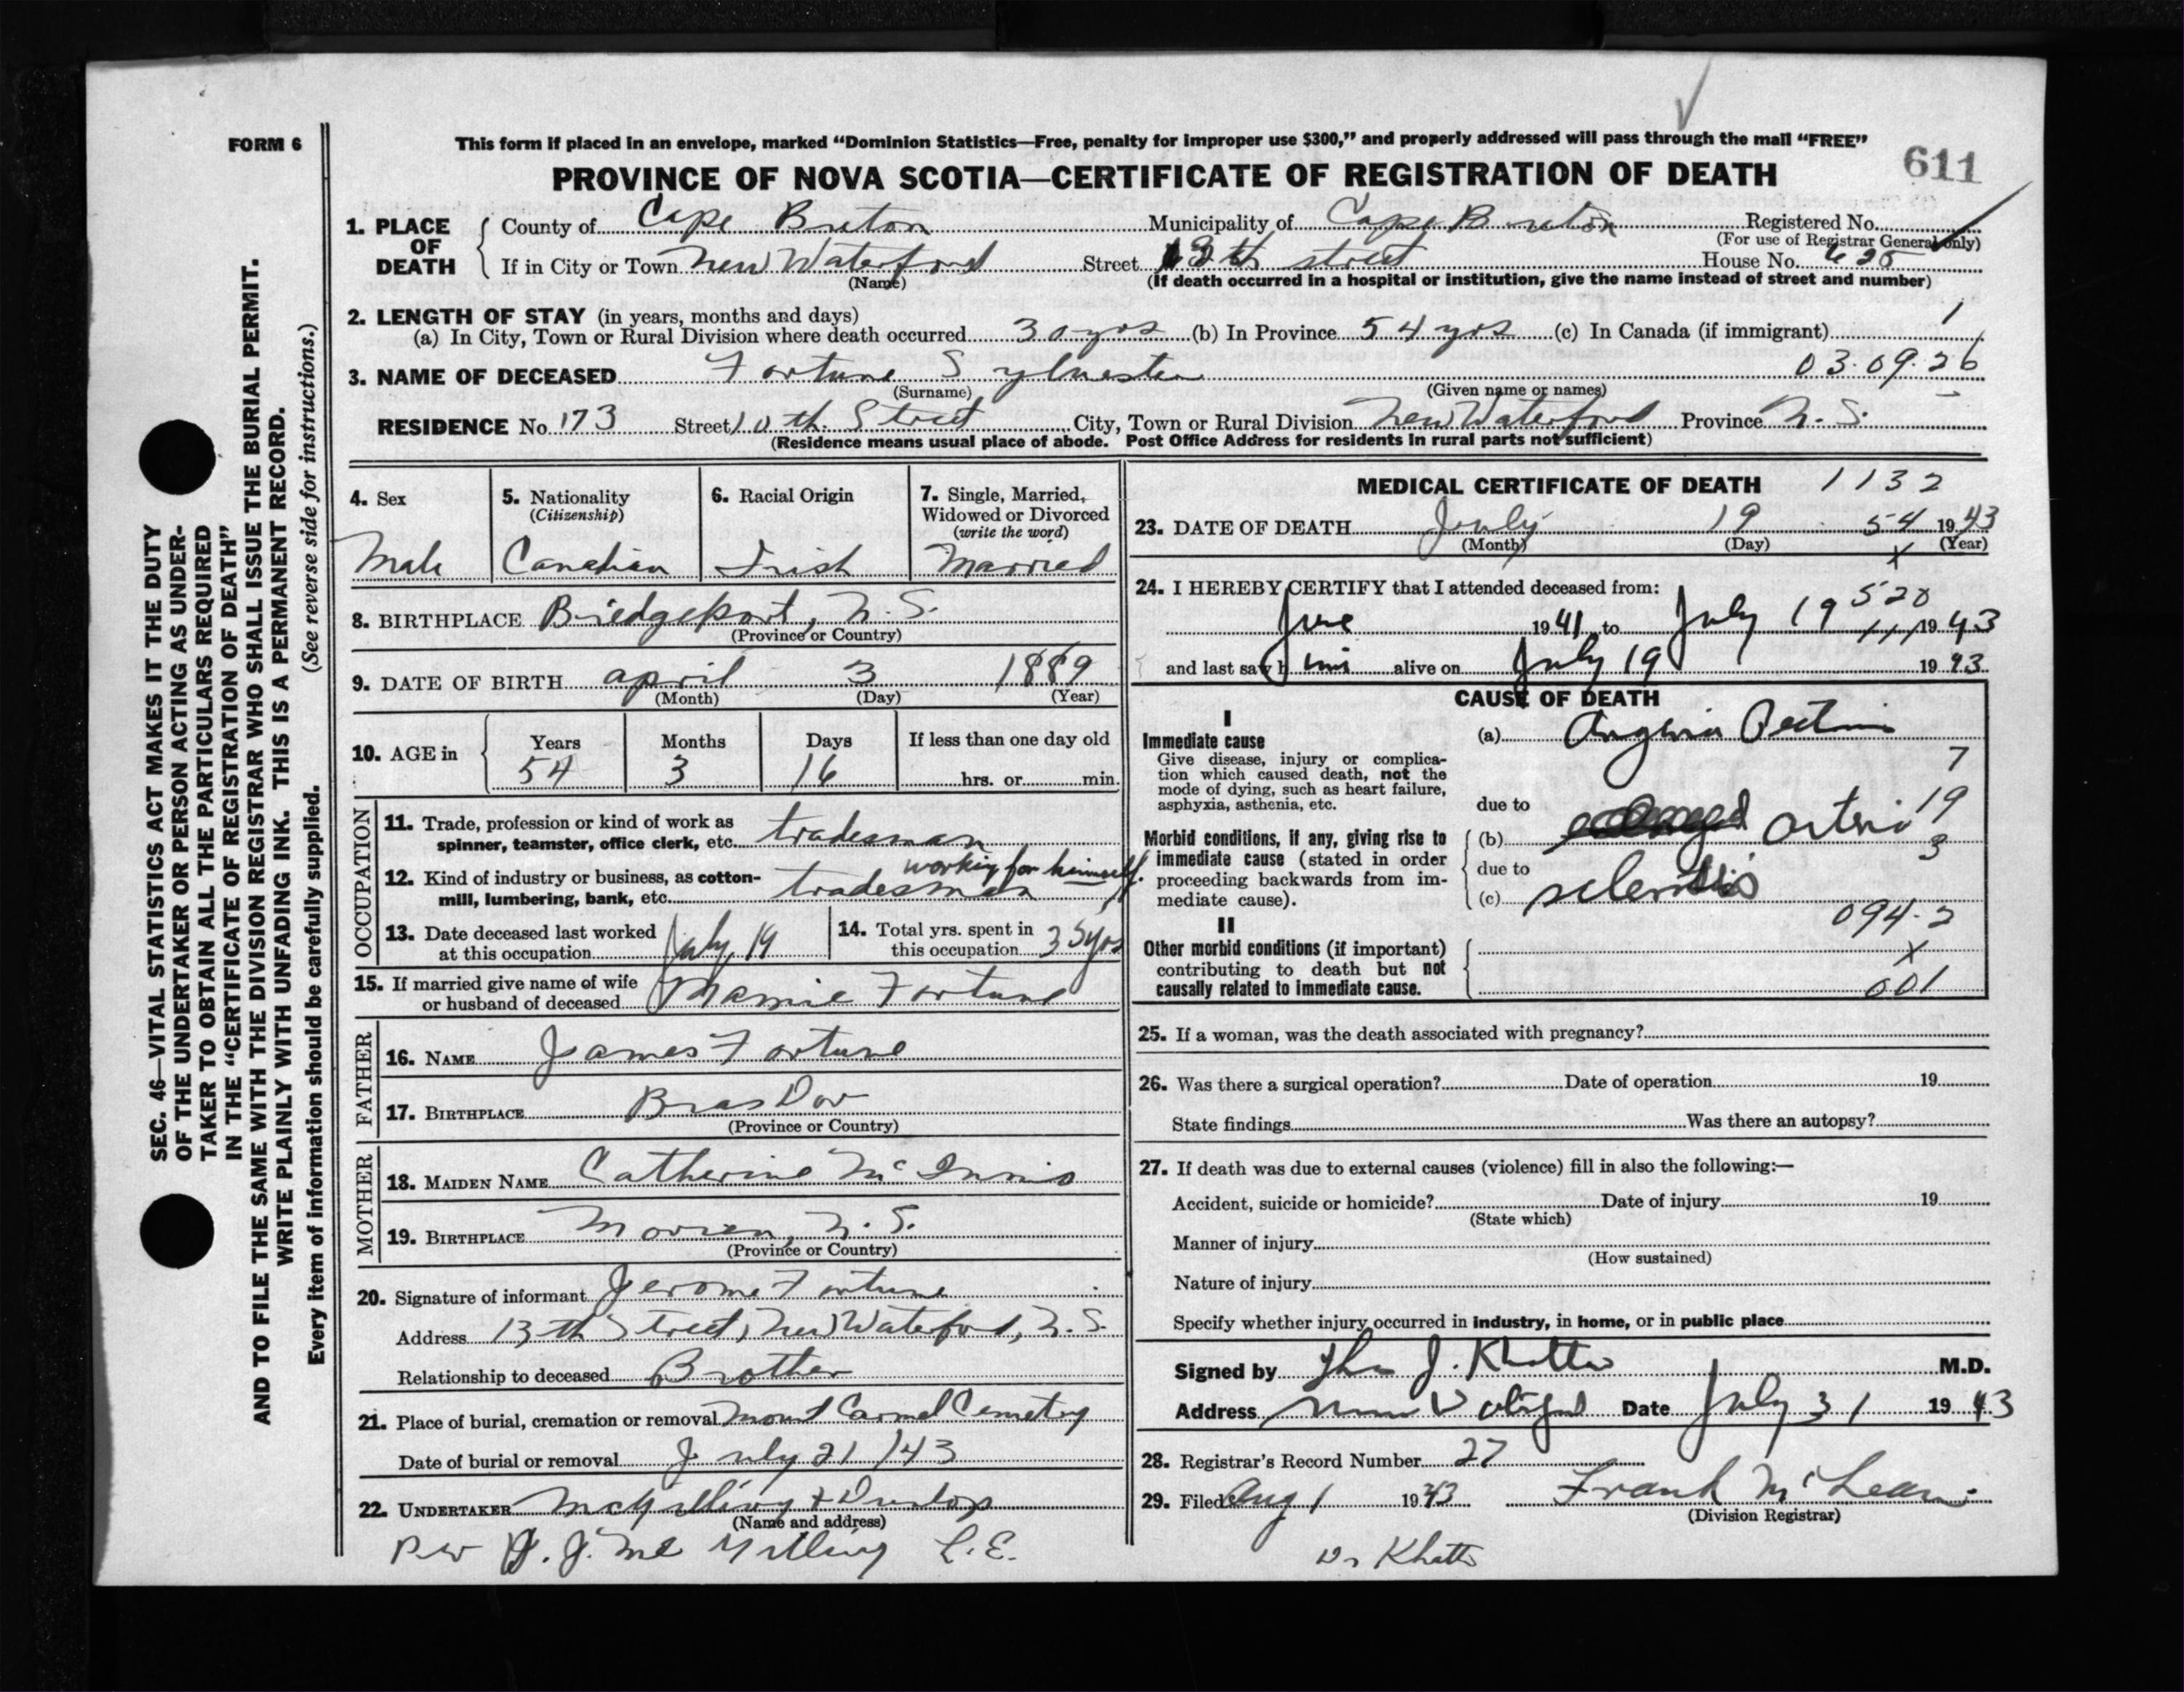 FORM 6
This form if placed in an envelope, marked "Dominion Statistics—Free, penalty for improper use $300," and properly addressed will pass through the mail "FREE"
PROVINCE OF NOVA SCOTIA—CERTIFICATE OF REGISTRATION OF DEATH
611
SEC. 46—VITAL STATISTICS ACT MAKES IT THE DUTY
OF THE UNDERTAKER OR PERSON ACTING AS UNDER-
TAKER TO OBTAIN ALL THE PARTICULARS REQUIRED
IN THE "CERTIFICATE OF REGISTRATION OF DEATH"
AND TO FILE THE SAME WITH THE DIVISION REGISTRAR WHO SHALL ISSUE THE BURIAL PERMIT.
WRITE PLAINLY WITH UNFADING INK. THIS IS A PERMANENT RECORD.
(See reverse side for instructions.)
Every item of information should be carefully supplied.
1. PLACE OF DEATH
County of Cape Breton Municipality of Cape Breton Registered No.
(For use of Registrar General only)
If in City or Town New Waterford Street 13th street House No. 625
(Name) (If death occurred in a hospital or institution, give the name instead of street and number)
2. LENGTH OF STAY (in years, months and days)
(a) In City, Town or Rural Division where death occurred 30 yrs (b) In Province 54 yrs (c) In Canada (if immigrant) 1
3. NAME OF DECEASED Fortune Sylvester 03.09.26
(Surname) (Given name or names)
RESIDENCE No 173 Street 10th. Street City, Town or Rural Division New Waterford Province N.S.
(Residence means usual place of abode. Post Office Address for residents in rural parts not sufficient)
4. Sex
Male
5. Nationality
(Citizenship)
Canadian
6. Racial Origin
Irish
7. Single, Married,
Widowed or Divorced
(write the word)
Married
8. BIRTHPLACE Bridgeport, N.S.
(Province or Country)
9. DATE OF BIRTH april 3 1889
(Month) (Day) (Year)
10. AGE in Years Months Days If less than one day old
54 3 16 hrs. or min.
OCCUPATION
11. Trade, profession or kind of work as
spinner, teamster, office clerk, etc. tradesman
working for himself.
12. Kind of industry or business, as cotton-
mill, lumbering, bank, etc. tradesman
13. Date deceased last worked
at this occupation July, 19
14. Total yrs. spent in
this occupation 35 yrs
15. If married give name of wife
or husband of deceased Mamie Fortune
FATHER
16. NAME James Fortune
17. BIRTHPLACE Bras Dor
(Province or Country)
MOTHER
18. MAIDEN NAME Catherine McInnis
19. BIRTHPLACE Morien, N.S.
(Province or Country)
20. Signature of informant Jerome Fortune
Address 13th Street, New Waterford, N.S.
Relationship to deceased Brother
21. Place of burial, cremation or removal Mount Carmel Cemetery
Date of burial or removal July 21/43
22. UNDERTAKER McGillivry & Dunlop
(Name and address)
Per J. J. McGillivry L.E.
MEDICAL CERTIFICATE OF DEATH 1132
23. DATE OF DEATH July 19 54 1943
(Month) (Day) (Year)
x
24. I HEREBY CERTIFY that I attended deceased from:
520
June 1941 to July 19 1943
and last saw him alive on July 19 1943
CAUSE OF DEATH
I
Immediate cause
Give disease, injury or complica-
tion which caused death, not the
mode of dying, such as heart failure,
asphyxia, asthenia, etc.
(a) Angina Pectoris
7
due to
19
Morbid conditions, if any, giving rise to
immediate cause (stated in order
proceeding backwards from im-
mediate cause).
(b) Arterio
3
due to
(c) sclerosis
094-2
II
Other morbid conditions (if important)
contributing to death but not
causally related to immediate cause.
x
001
25. If a woman, was the death associated with pregnancy?
26. Was there a surgical operation? Date of operation 19
State findings Was there an autopsy?
27. If death was due to external causes (violence) fill in also the following:—
Accident, suicide or homicide? Date of injury 19
(State which)
Manner of injury
(How sustained)
Nature of injury
Specify whether injury occurred in industry, in home, or in public place
Signed by Thos J. Khattar M.D.
Address New Waterford Date July 31 1943
28. Registrar's Record Number 27
29. Filed Aug 1 1943 Frank McLean
(Division Registrar)
Dr Khatta